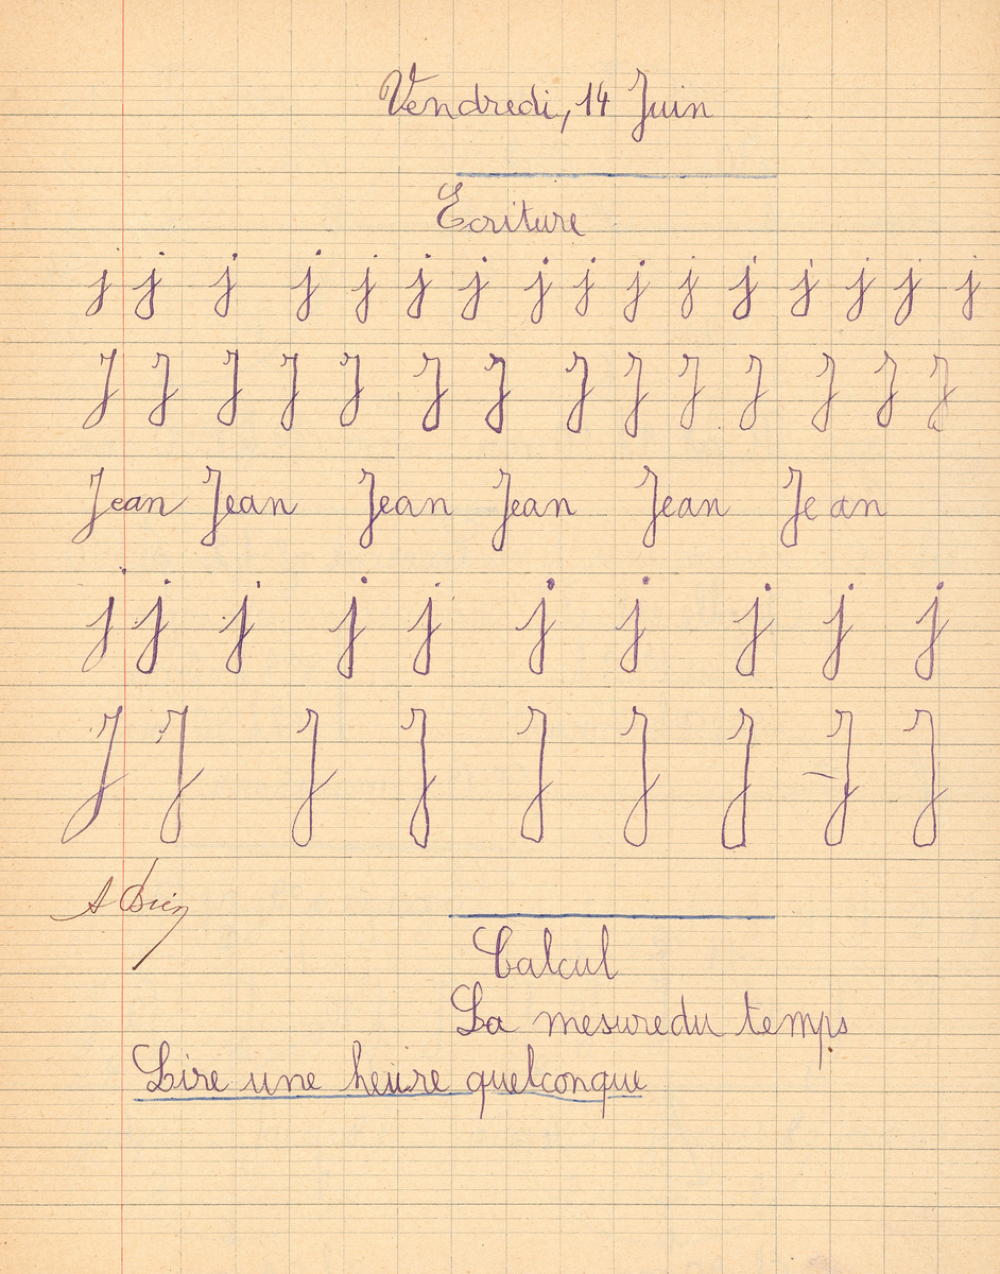 Vendredi, 14 Juin
Ecriture
j j j j j j j j j j j j j j j j
J J J J J J J J J J J J J J
Jean Jean Jean Jean Jean Jean
j j j j j j j j j j
J J J J J J J J J
Bien
Calcul
La mesure du temps
Lire une heure quelconque